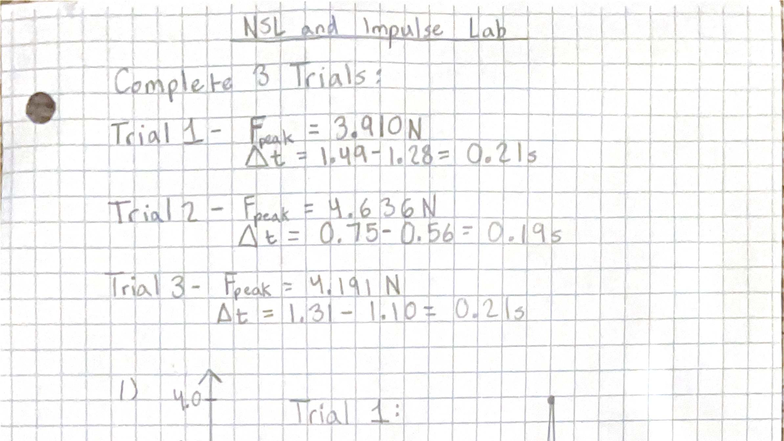 NSL and Impulse Lab
Complete 3 Trials:
Trial 1- Fpeak = 3.910N
Δt = 1.49-1.28= 0.21s
Trial 2 - Fpeak = 4.636N
Δt = 0.75-0.56= 0.19s
Trial 3- Fpeak = 4.191 N
Δt = 1.31- 1.10= 0.21s
1) 4.0 Trial 1: